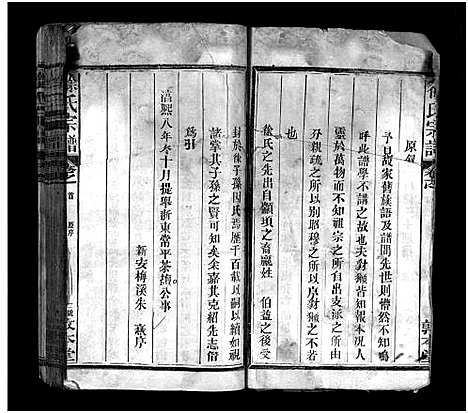 徐氏宗譜
原叙
予曰故家舊族語及譜問先世則懵然不知嗚
呼此譜學不講之故也夫豺獺皆知報本況人
靈於萬物而不知祖宗之所自出支派之所由
分親疏之所以別昭穆之所以序豺獺之不若
也
徐氏之先出自顓頊之裔嬴姓　伯益之後受
封於徐子孫因氏焉歷千百載以嗣以續如視
諸掌其子孫之賢可知矣余嘉其克紹先志俗
爲引
淳熙八年冬十月提舉浙東常平茶鹽公事
新安梅溪朱　熹序
徐氏宗譜
卷之首
原序
敦本堂